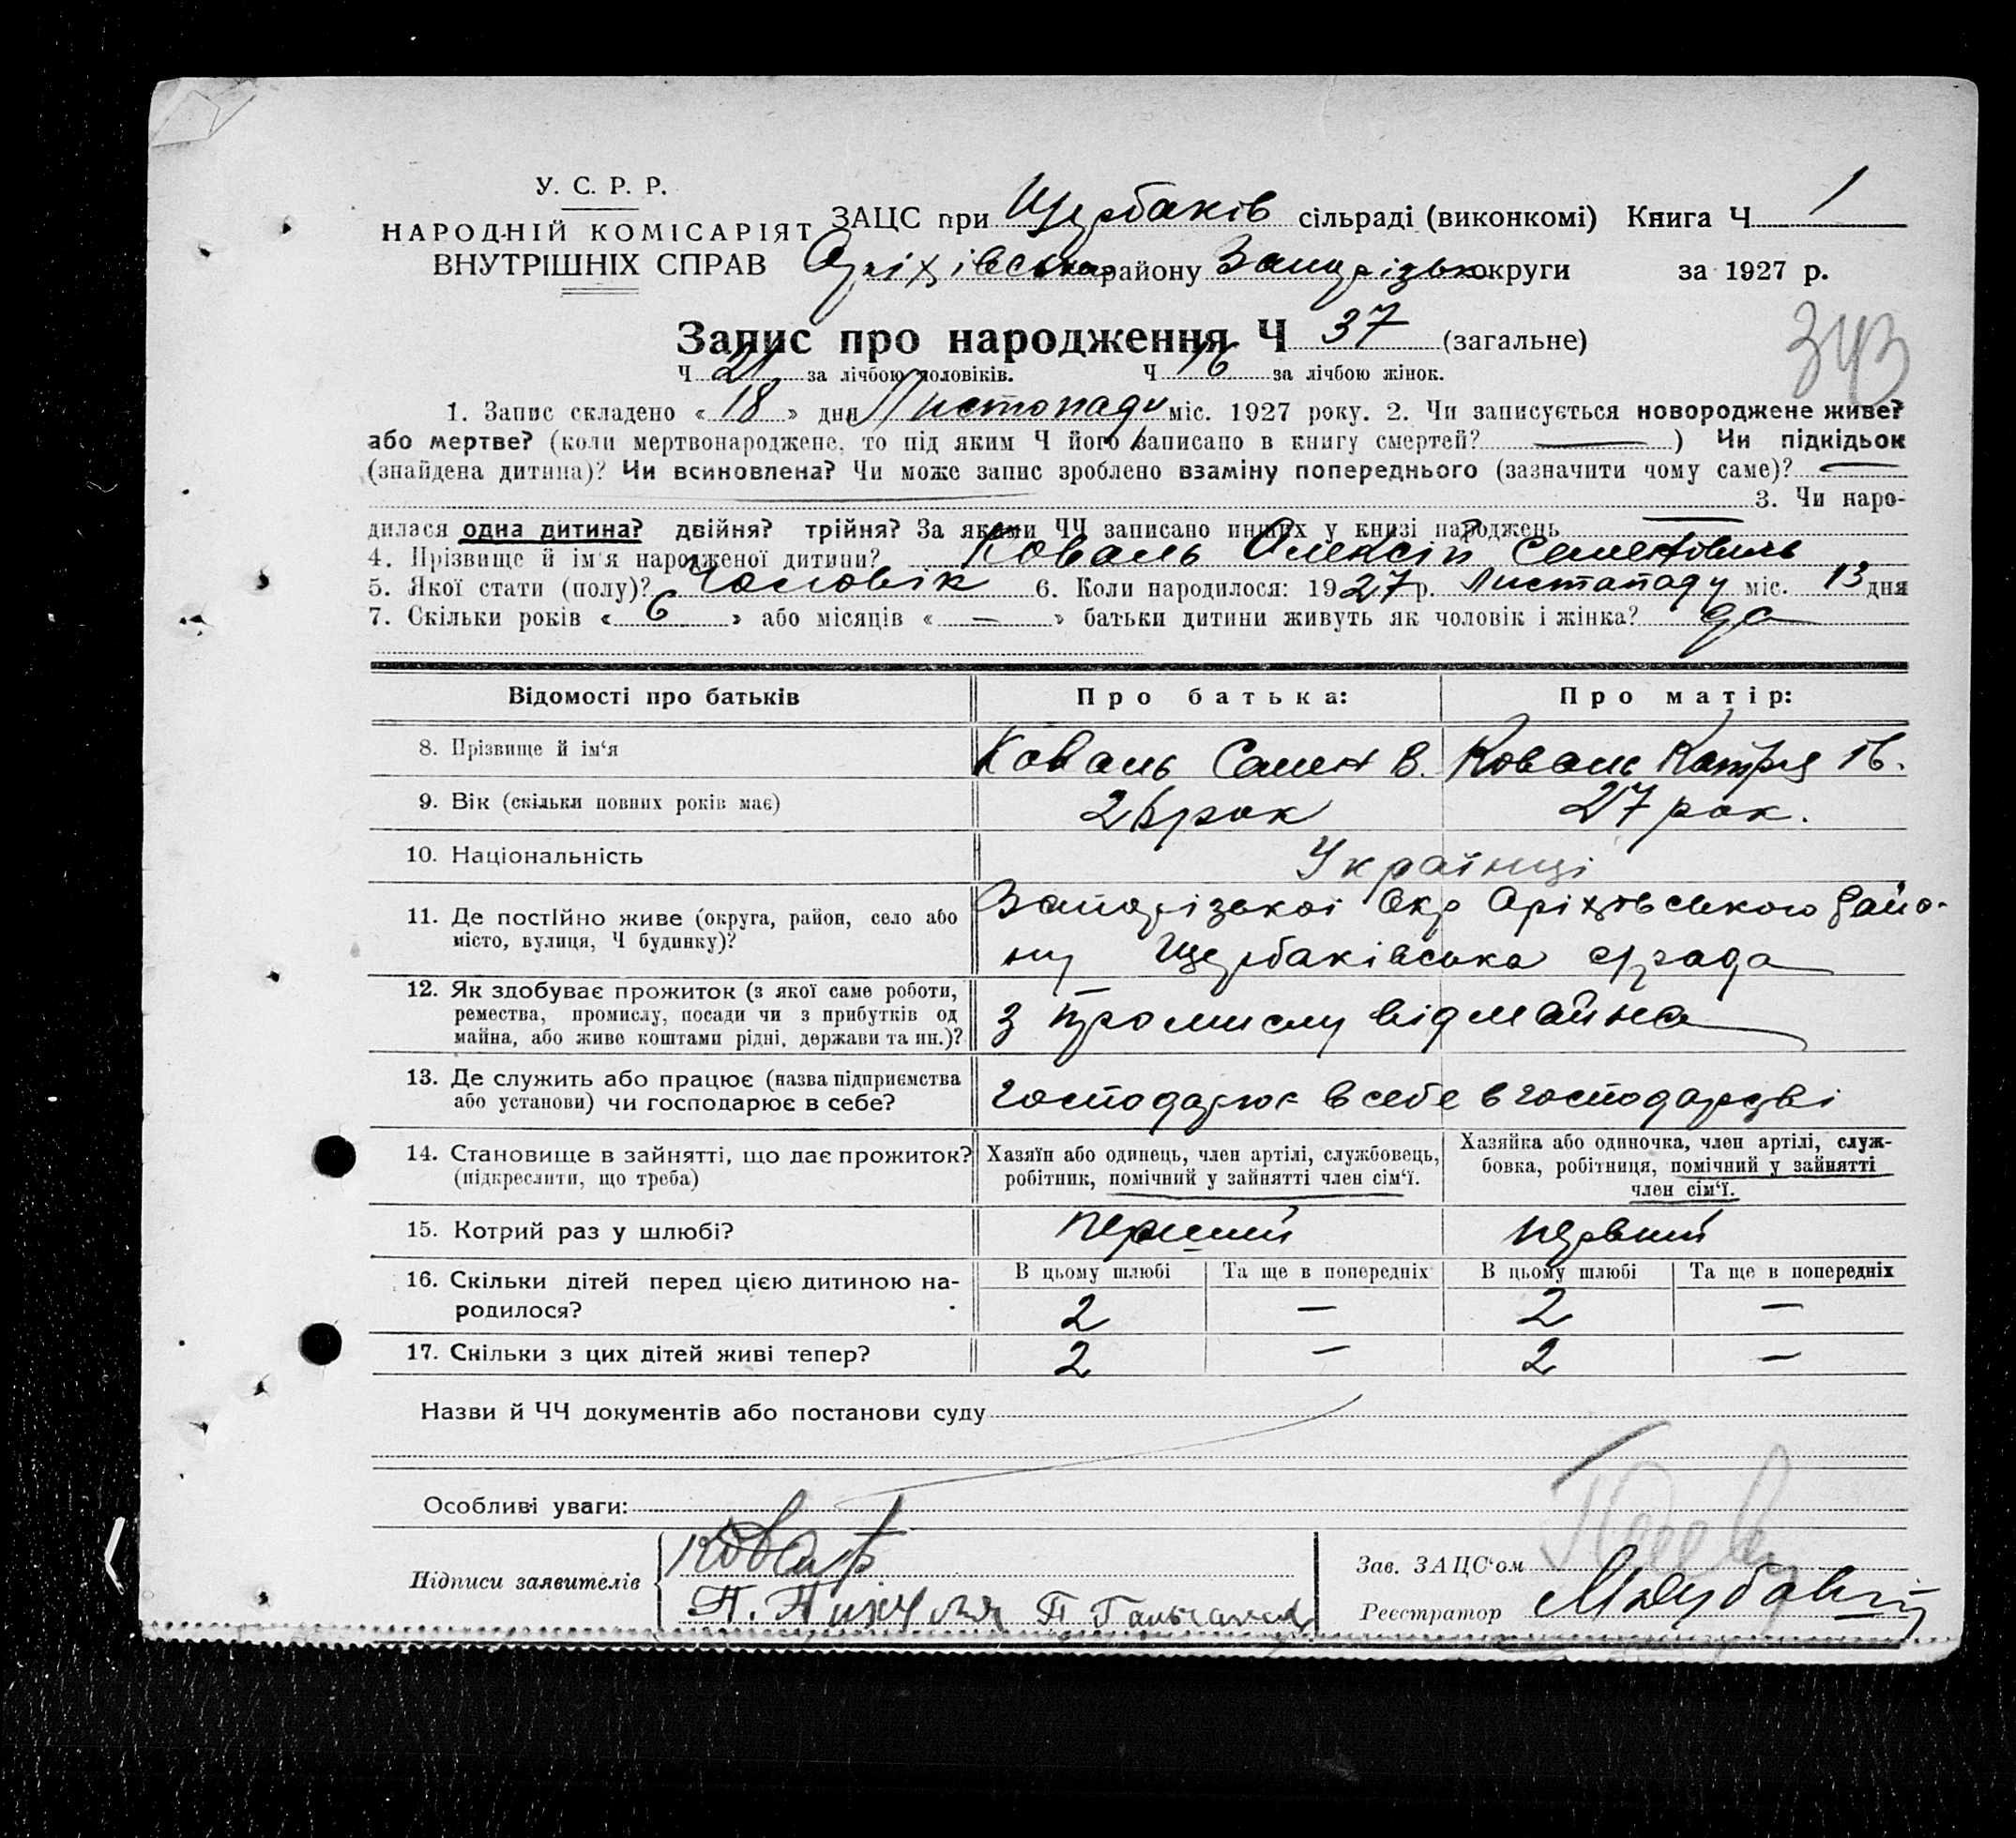 У. С. Р. Р.
НАРОДНІЙ КОМІСАРІЯТ
ВНУТРІШНІХ СПРАВ
ЗАЦС при Щербаків сільраді (виконкомі) Книга Ч 1
Оріхівськ району Запорізьк округи за 1927 р.
Запис про народження Ч 37 (загальне)
343
Ч 21 за лічбою чоловіків. Ч 16 за лічбою жінок.
1. Запис складено « 18 » дня Листопаду міс. 1927 року. 2. Чи записується новороджене живе?
або мертве? (коли мертвонароджене, то під яким Ч його записано в книгу смертей? — ) Чи підкідьок
(знайдена дитина)? Чи всиновлена? Чи може запис зроблено взаміну попереднього (зазначити чому саме)? —
3. Чи наро-
дилася одна дитина? двійня? трійня? За якими ЧЧ записано инших у книзі народжень —
4. Прізвище й ім'я народженої дитини? Коваль Олексій Семенович
5. Якої стати (полу)? Чоловік 6. Коли народилося: 1927 р. Листападу міс. 13 дня
7. Скільки років « 6 » або місяців « — » батьки дитини живуть як чоловік і жінка? да
Відомості про батьків Про батька: Про матір:
8. Прізвище й ім'я Коваль Семен В. Коваль Катря Ів.
9. Вік (скільки повних років має) 26 рок 27 рок.
10. Національність Українці
11. Де постійно живе (округа, район, село або Запорізькоі Окр Оріхівського Райо-
місто, вулиця, Ч будинку)? ну Щербаківська с/рада
12. Як здобуває прожиток (з якої саме роботи,
ремества, промислу, посади чи з прибутків од з промислу від майна
майна, або живе коштами рідні, держави та ин.)?
13. Де служить або працює (назва підприємства
або установи) чи господарює в себе? господарює в себе в господарстві
14. Становище в зайнятті, що дає прожиток? Хазяїн або одинець, член артілі, службовець, Хазяйка або одиночка, член артілі, служ-
(підкреслити, що треба) робітник, помічний у зайнятті член сім'ї. бовка, робітниця, помічний у зайнятті
член сім'ї.
15. Котрий раз у шлюбі? перший первий
16. Скільки дітей перед цією дитиною на- В цьому шлюбі Та ще в попередніх В цьому шлюбі Та ще в попередніх
родилося? 2 — 2 —
17. Скільки з цих дітей живі тепер? 2 — 2 —
Назви й ЧЧ документів або постанови суду
Особливі уваги:
Підписи заявителів
П. Пихуля П
Зав. ЗАЦС'ом
Реєстратор